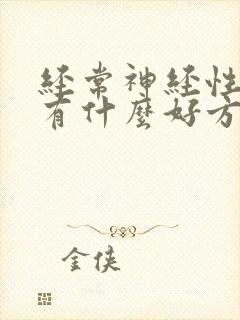 经常神经性
有什麼好方
金侠